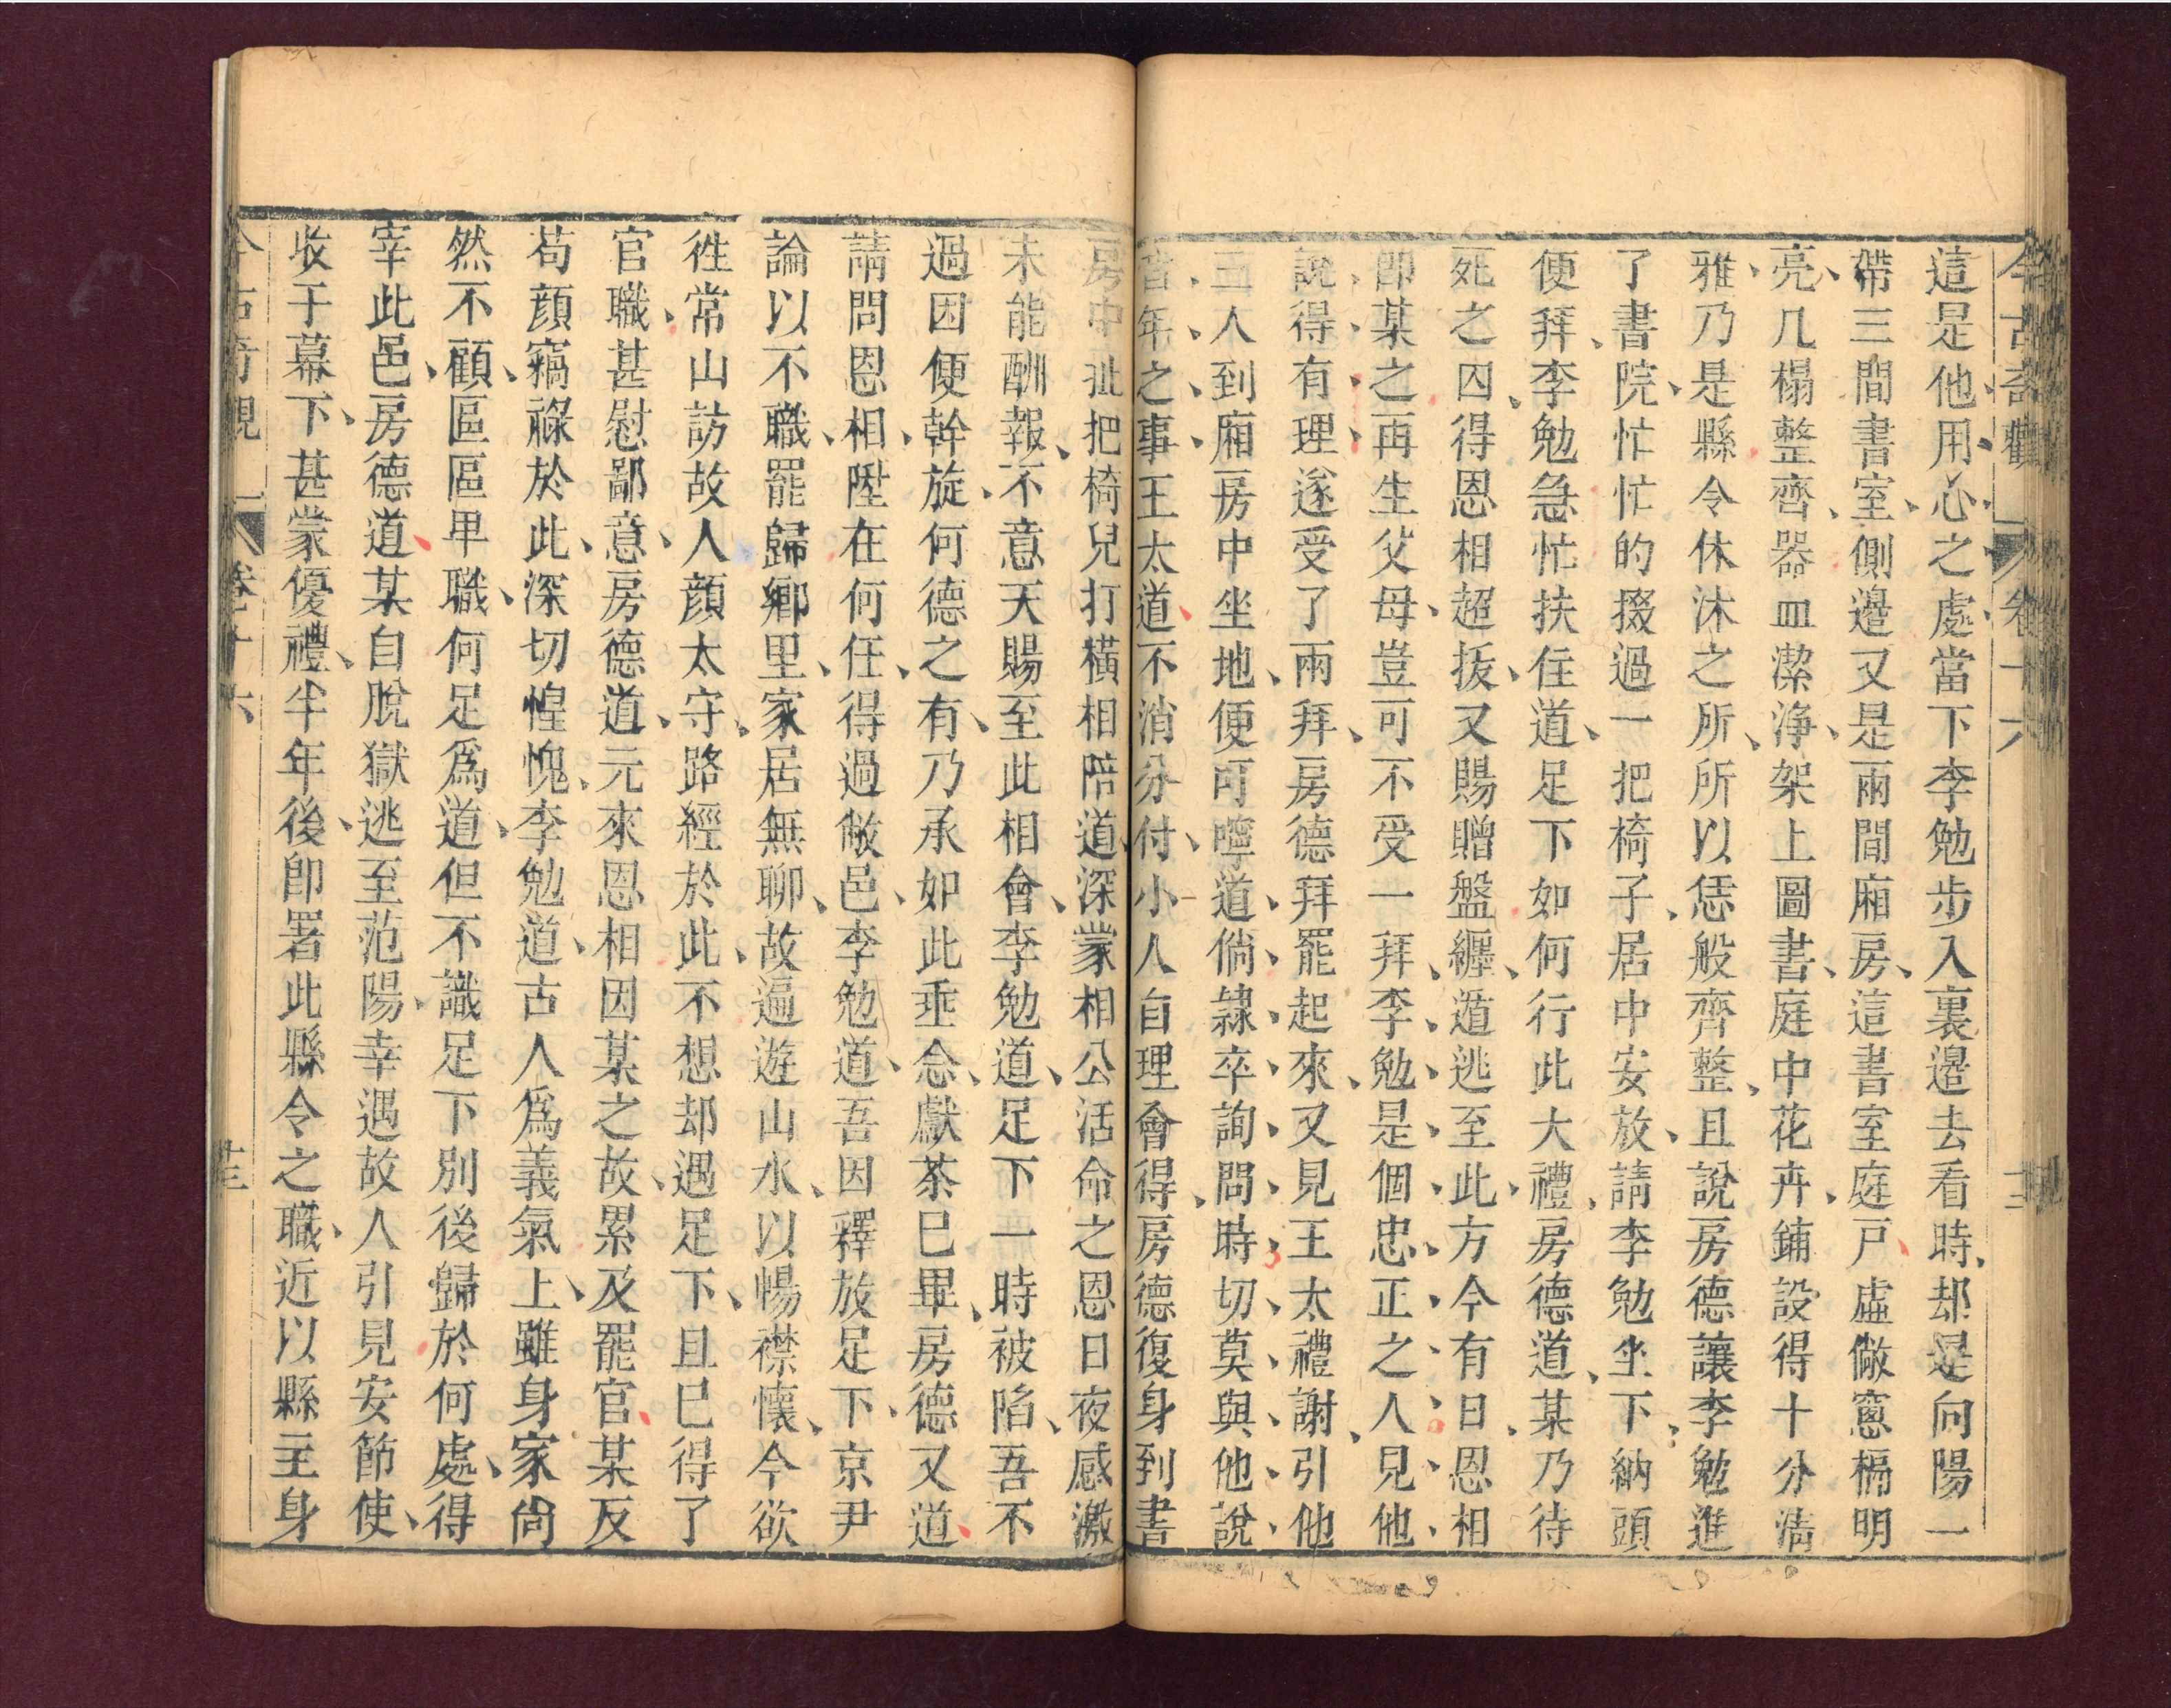 今古奇觀 卷十六
這是他用心之處當下李勉步入裏邊去看時却是向陽一
帶三間書室側邊又是兩間廂房這書室庭戸虛敞窻槅明
亮几榻整齊器皿潔浄架上圖書庭中花卉鋪設得十分清
雅乃是縣令休沐之所所以恁般齊整且說房德讓李勉進
了書院忙忙的掇過一把椅子居中安放請李勉坐下納頭
便拜李勉急忙扶住道足下如何行此大禮房德道某乃待
死之囚得恩相超拔又賜贈盤纏遁逃至此方今有日恩相
卽某之再生父母豈可不受一拜李勉是個忠正之人見他
說得有理遂受了兩拜房德拜罷起來又見王太禮謝引他
三人到廂房中坐地便叮嚀道倘隷卒詢問時切莫與他說
昔年之事王太道不消分付小人自理會得房德復身到書
房中扯把椅兒打橫相陪道深蒙相公活命之恩日夜感激
未能酬報不意天賜至此相會李勉道足下一時被陷吾不
過因便幹旋何德之有乃承如此垂念獻茶巳畢房德又道
請問恩相陞在何任得過敝邑李勉道吾因釋放足下京尹
論以不職罷歸鄉里家居無聊故遍遊山水以暢襟懷今欲
徃常山訪故人顔太守路經於此不想却遇足下且巳得了
官職甚慰鄙意房德道元來恩相因某之故累及罷官某反
苟顔竊祿於此深切惶愧李勉道古人爲義氣上雖身家尙
然不顧區區甲職何足爲道但不識足下別後歸於何處得
宰此邑房德道某自脫獄逃至范陽幸遇故人引見安節使
收于幕下甚蒙優禮半年後卽署此縣令之職近以縣主身
今古奇觀 卷十六